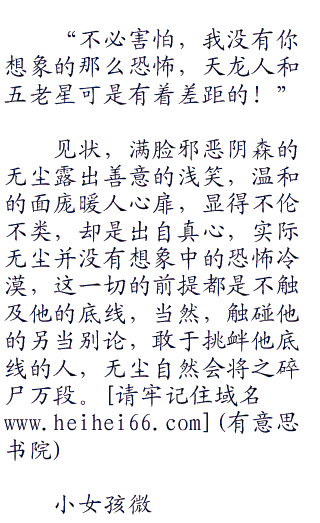 “不必害怕，我没有你
想象的那么恐怖，天龙人和
五老星可是有着差距的！”
见状，满脸邪恶阴森的
无尘露出善意的浅笑，温和
的面庞暖人心扉，显得不伦
不类，却是出自真心，实际
无尘并没有想象中的恐怖冷
漠，这一切的前提都是不触
及他的底线，当然，触碰他
的另当别论，敢于挑衅他底
线的人，无尘自然会将之碎
尸万段。[请牢记住域名
www.heihei66.com](有意思
书院)
小女孩微